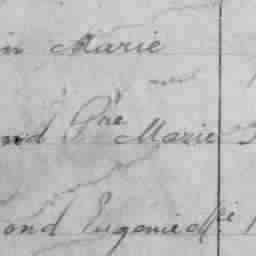 in Marie
nd Marie
ond Eugenie